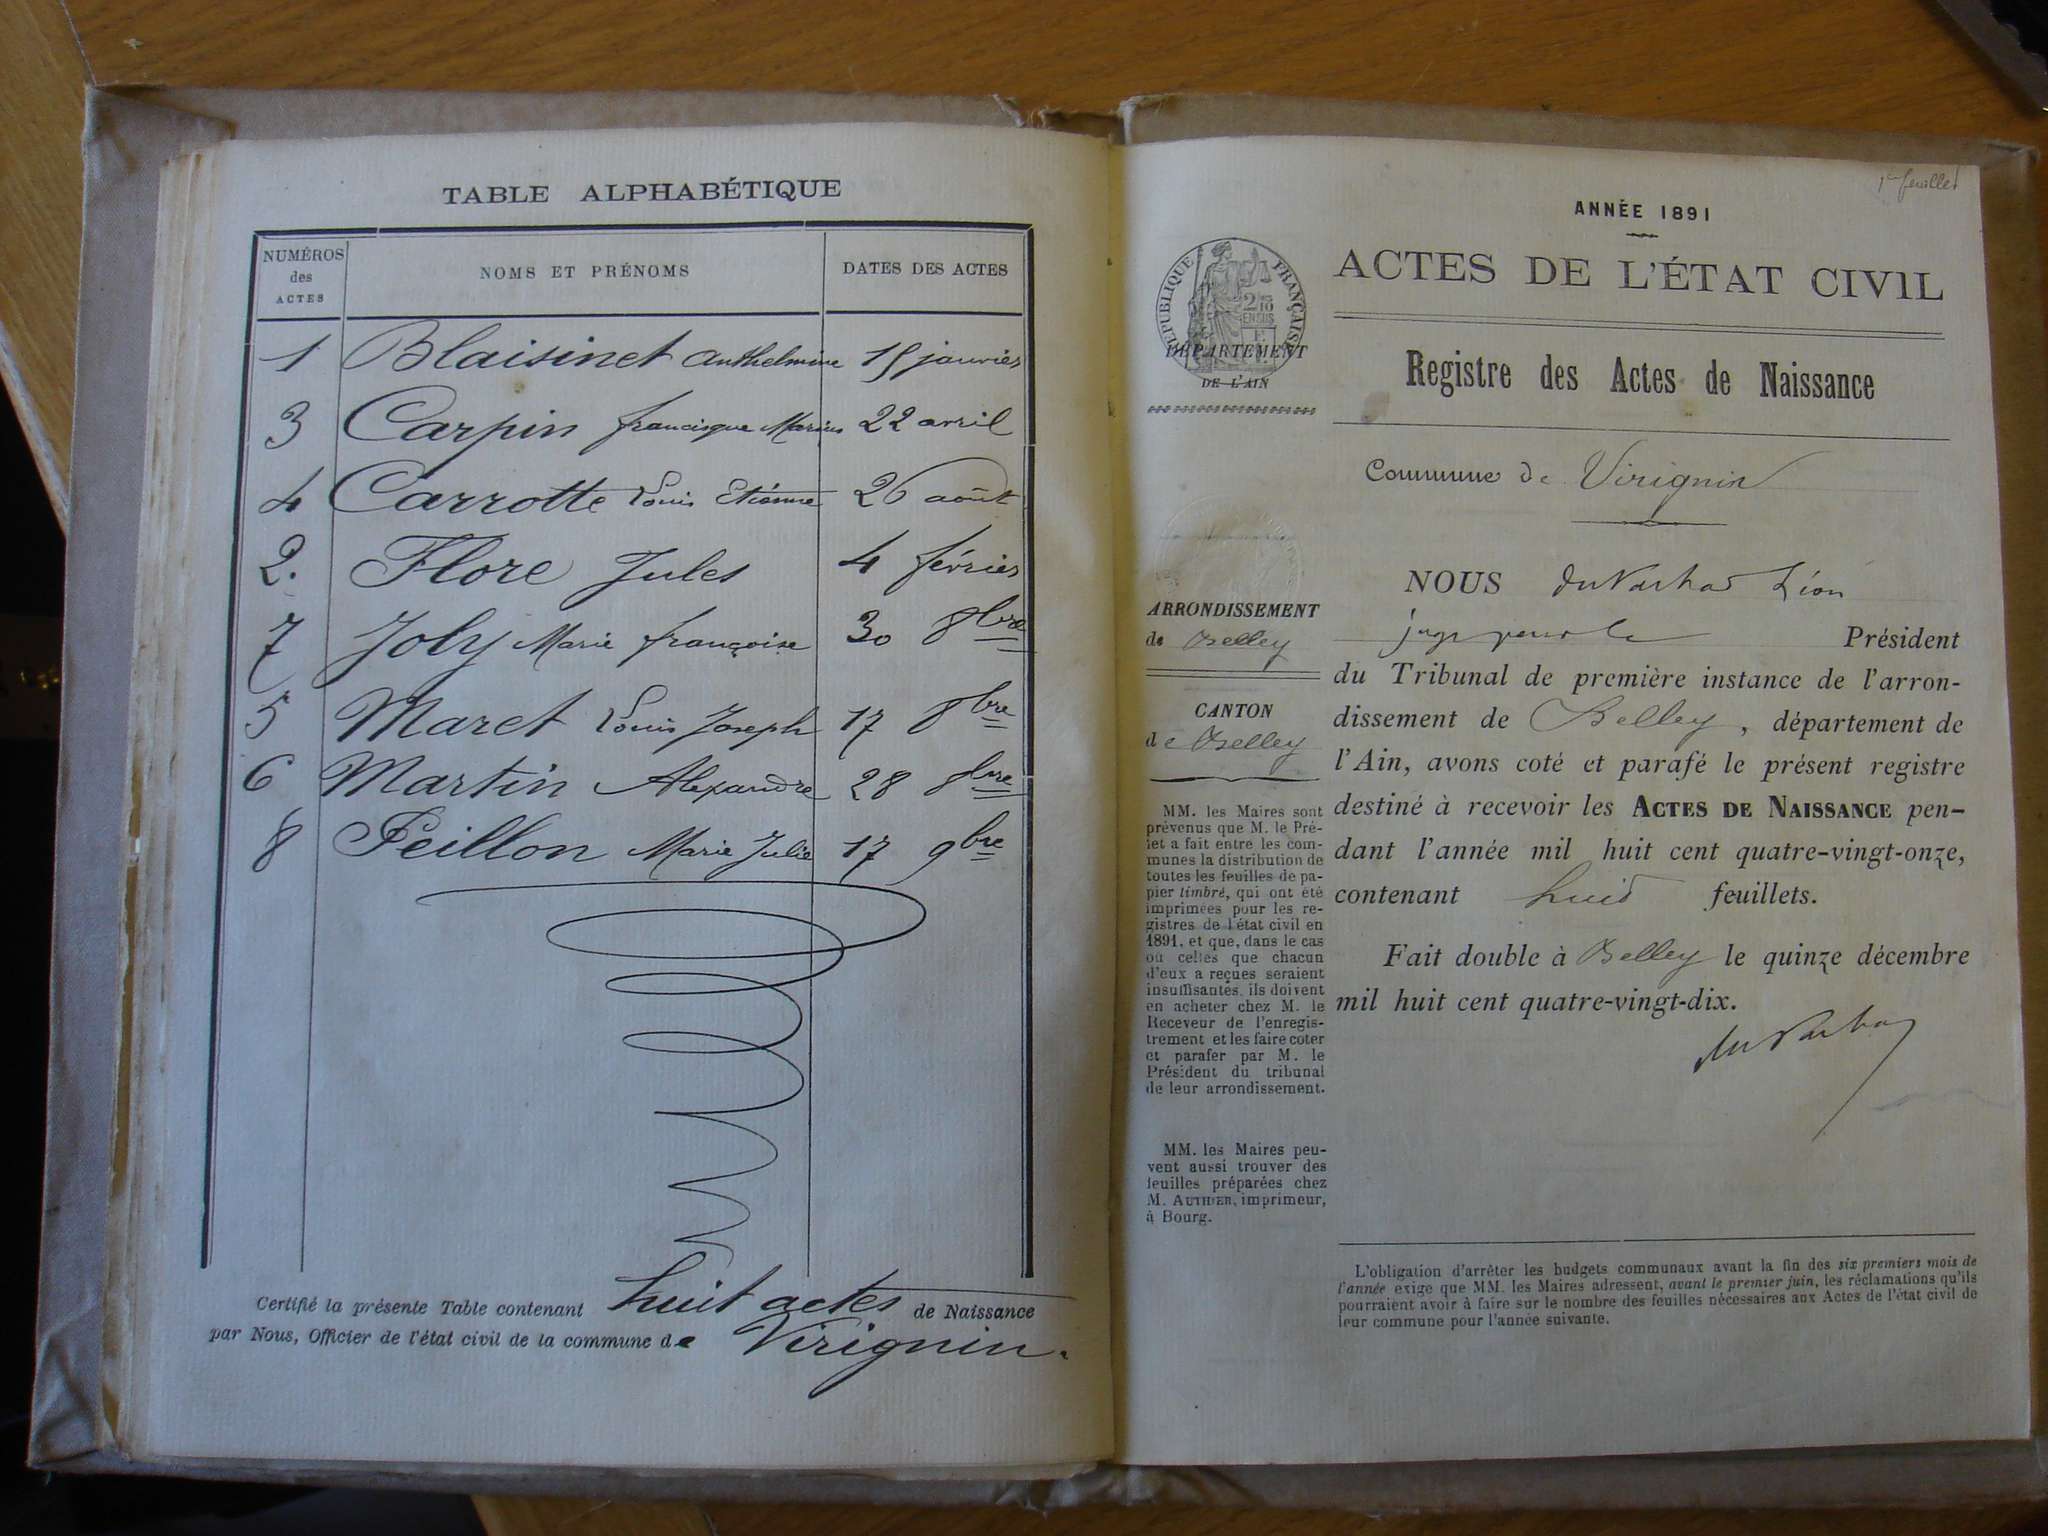 TABLE ALPHABÉTIQUE
NUMÉROS des ACTES NOMS ET PRÉNOMS DATES DES ACTES
1 Blaisinet Anthelmine 15 janvier
3 Carpin francisque Marius 22 avril
4 Carrotte Louis Etienne 26 août
2. Flore Jules 4 février
7 Joly Marie françoise 30 8bre
5 Maret Louis Joseph 17 8bre
6 Martin Alexandre 28 8bre
8 Peillon Marie Julie 17 9bre
Certifié la présente Table contenant huit actes de Naissance
par Nous, Officier de l'état civil de la commune de Virignin.
1er feuillet
ANNÉE 1891
ACTES DE L'ÉTAT CIVIL
RÉPUBLIQUE FRANÇAISE
DÉPARTEMENT
DE L'AIN
Registre des Actes de Naissance
Commune de Virignin
ARRONDISSEMENT
de Belley
CANTON
de Belley
MM. les Maires sont
prévenus que M. le Pré-
fet a fait entre les com-
munes la distribution de
toutes les feuilles de pa-
pier timbré, qui ont été
imprimées pour les re-
gistres de l'état civil en
1891, et que, dans le cas
où celles que chacun
d'eux a reçues seraient
insuffisantes, ils doivent
en acheter chez M. le
Receveur de l'enregis-
trement et les faire coter
et parafer par M. le
Président du tribunal
de leur arrondissement.
MM. les Maires peu-
vent aussi trouver des
feuilles préparées chez
M. AUTHIER, imprimeur,
à Bourg.
NOUS Léon
juge Président
du Tribunal de première instance de l'arron-
dissement de Belley, département de
l'Ain, avons coté et parafé le présent registre
destiné à recevoir les ACTES DE NAISSANCE pen-
dant l'année mil huit cent quatre-vingt-onze,
contenant huit feuillets.
Fait double à Belley le quinze décembre
mil huit cent quatre-vingt-dix.
L'obligation d'arrêter les budgets communaux avant la fin des six premiers mois de
l'année exige que MM. les Maires adressent, avant le premier juin, les réclamations qu'ils
pourraient avoir à faire sur le nombre des feuilles nécessaires aux Actes de l'état civil de
leur commune pour l'année suivante.